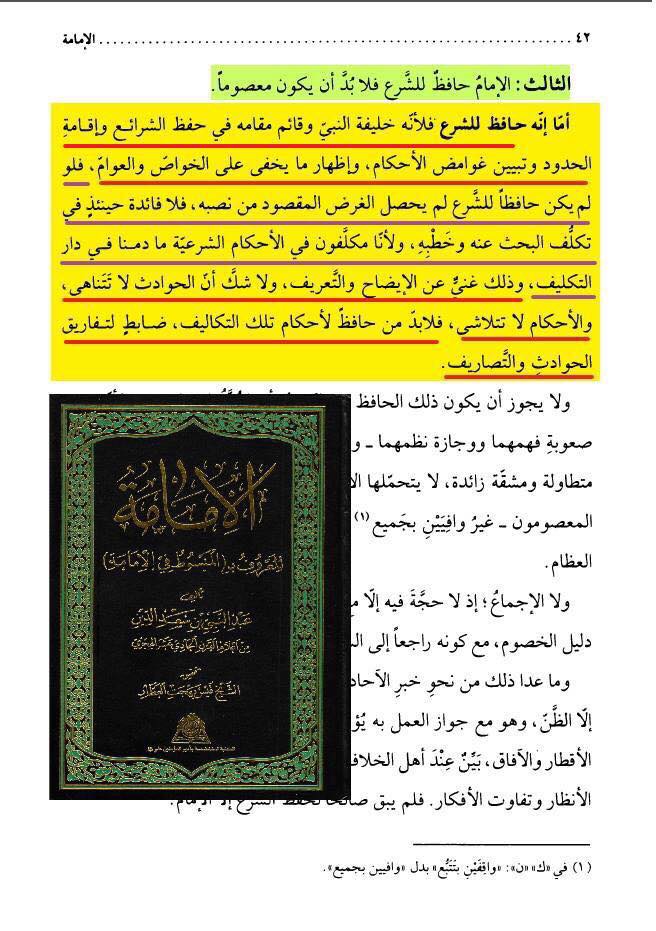 ٤٢ ........................................................ الإمامة
الثالث: الإمامُ حافظٌ للشَّرع فلا بُدَّ أن يكون معصوماً.
أمّا إنّه حافظ للشرع فلأنّه خليفة النبيّ وقائم مقامه في حفظ الشرائع وإقامةِ
الحدود وتبيين غوامض الأحكام، وإظهار ما يخفى على الخواصّ والعوامّ، فلو
لم يكن حافظاً للشَّرع لم يحصل الغرض المقصود من نصبه، فلا فائدة حينئذٍ في
تكلُّف البحث عنه وخَطْبِهِ، ولأنّا مكلَّفون في الأحكام الشرعيّة ما دمنا في دار
التكليف، وذلك غنيٌّ عن الإيضاح والتَّعريف، ولا شكَّ أنّ الحوادث لا تَتَناهى،
والأحكام لا تتلاشى، فلابدّ من حافظٍ لأحكام تلك التكاليف، ضابطٍ لتفاريق
الحوادثِ والتَّصاريف.
ولا يجوز أن يكون ذلك الحافظ
صعوبةِ فهمهما ووجازة نظمهما ـ و
متطاولة ومشقّة زائدة، لا يتحمّلها
المعصومون ـ غيرُ وافِيَيْنِ بجَميع (١)
العظام.
ولا الإجماعُ؛ إذ لا حجّةَ فيه إلّا
دليل الخصوم، مع كونه راجعاً إلى
وما عدا ذلك من نحوِ خبرِ الآحاد
إلّا الظّنّ، وهو مع جواز العمل به
الأقطار والآفاق، بَيِّنٌ عِنْدَ أهل الخلاف
الأنظار وتفاوت الأفكار. فلم يبق صالحاً لحفظ الشرع إلّا الإمام.
الإمامة
المعروف بـ (المبسوط في الإمامة)
تأليف
عبد النبي بن سعد الدين
تحقيق
(١) في «ك» «ن»: «واقِفَيْنِ بتَتَبُّع» بدل «وافيين بجميع».